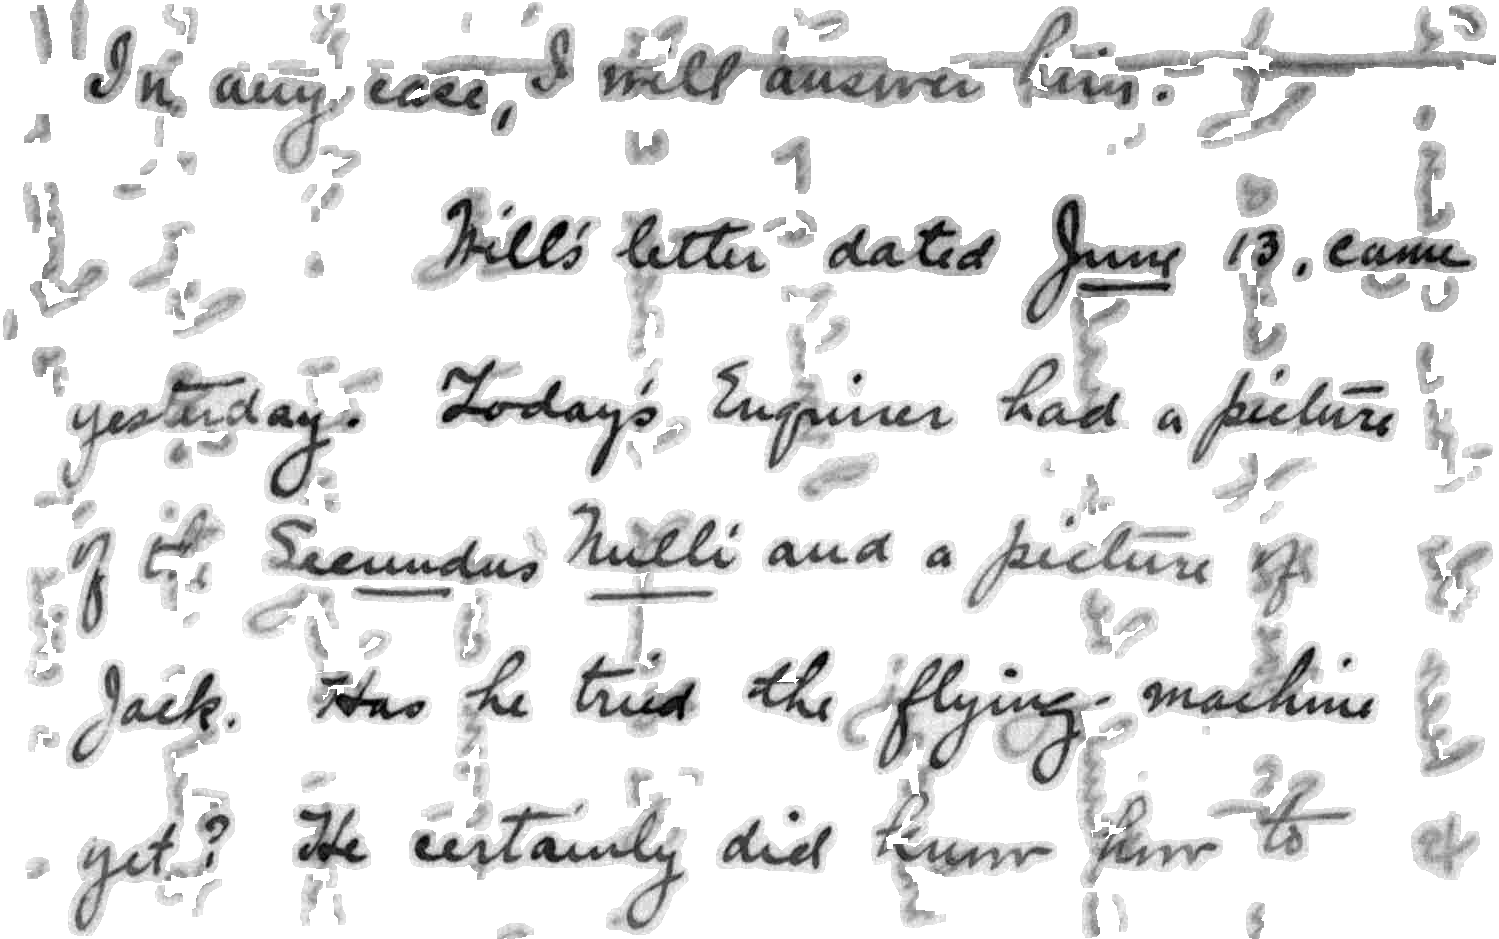 In any case, I will answer him.
Will's letter dated June 13. came
yesterday. Today's Enquirer had a picture
of the Secundus Nulli and a picture of
Jack. Has he tried the flying machine
yet? He certainly did know how to